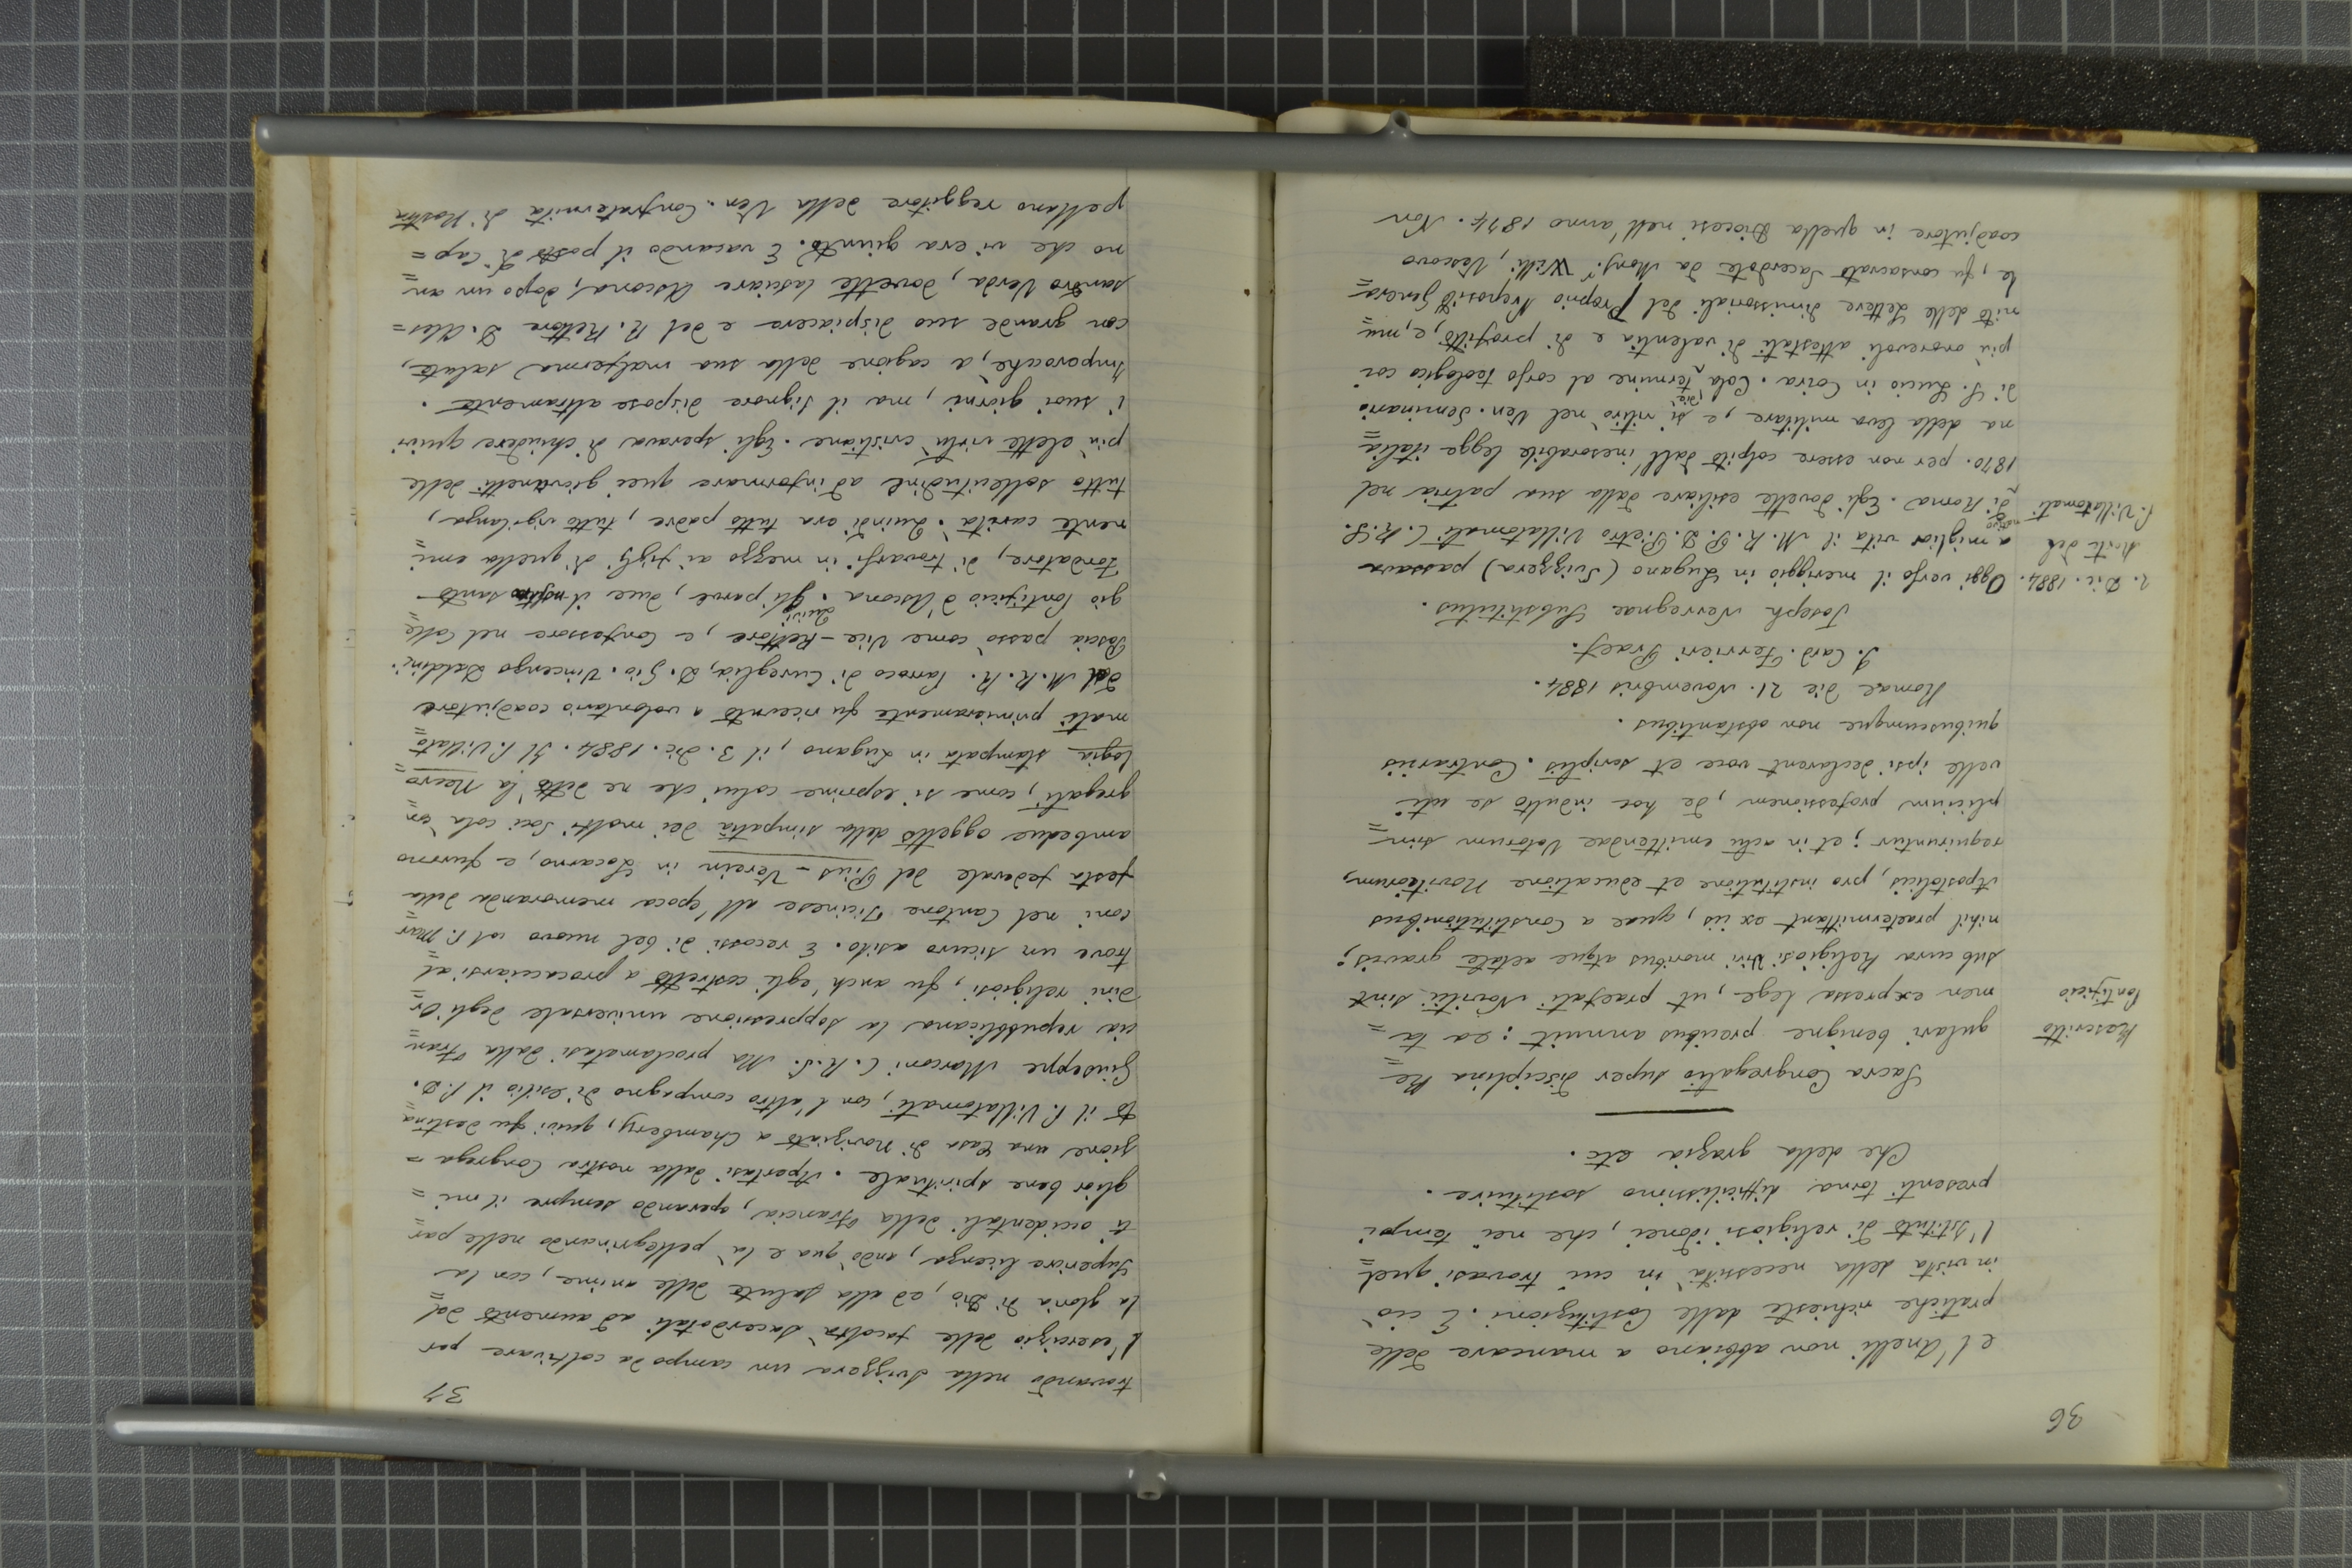 36
e l'Anelli non abbiano a mancare delle
pratiche richieste dalle Costituzioni. E ciò
in vista della necessità in cui trovasi quel=
l'Istituto di religiosi idonei, che nei tempi
presenti torna difficilissimo sostituire.
Che della grazia etc.
Rescritto
Pontificio
Sacra Congregatio super disciplina Re=
gulari benigne precibus annuit: ea ta=
men expressa lege, ut, praefati Novitii sint
sub cura Religiosi Viri moribus atque aetate gravis;
nihil praetermittant ex iis, quae a Constitutionibus
Apostolicis, pro institutione et educatione Novitiorum,
requiruntur; et in actu emittendae Votorum sim=
plicium professionem, de hoc indulto se uti
velle ipsi declarent voce et scriptis. Contrariis
quibuscumque non obstantibus.
Romae die 21. Novembris 1884.
I. Card. Ferrieri Praef.
Joseph Nervegnae Substitutus.
2. Dic. 1884.
Morte del
P. Villatomati
Oggi verso il meriggio in Lugano (Svizzera) passava
a miglior vita il M. R. P. D. Pietro Villatomati C. R. S.
nativo
di Roma. Egli dovette esiliare dalla sua patria nel
1870. per non essere colpito dall'inesorabile legge italia=
na della leva militare, e si ritirò nel Ven. Seminario
di S. Lucio in Coira. Colà termine al corso teologico coi
più onorevoli attestati di valentia e di profitto, e, mu=
nito delle Lettere dimissoriali del Proprio Preposito Genera=
le, fu consacrato Sacerdote da Monsr. Willi, Vescovo
coadjutore in quella Diocesi nell'anno 1874. Non
37
trovando nella Svizzera un campo da coltivare per
l'esercizio delle facoltà Sacerdotali ad aumento del=
la gloria di Dio, ed alla salute delle anime, con la
Superiore licenza, andò qua e là pellegrinando nelle par=
ti occidentali della Francia, operando sempre il mi=
glior bene spirituale. Apertasi dalla nostra Congrega=
zione una Casa di Noviziato a Chambery, quivi fu destina=
to il P. Villatomati, con l'altro compagno di esilio il P. D.
Giuseppe Marconi C. R. S. Ma proclamatasi dalla Fran=
cia repubblicana la soppressione universale degli Or=
dini religiosi, fu anch'egli costretto a procacciarsi al=
trove un sicuro asilo. E recossi di bel nuovo col P. Mar=
coni nel Cantone Ticinese all'epoca memoranda della
festa federale del Pius-Verein in Locarno, e furono
ambedue oggetto della simpatia dei molti Soci colà con=
gregati, come si esprime colui che ne dettò la Necro=
logia stampata in Lugano, il 3. Dic. 1884. Il P. Villato=
mati primieramente fu ricevuto a volontario coadjutore
dal M. R. R. Parroco di Cureglia, D. Gio. Vincenzo Laldini.
Poscia passò come Vice-Rettore, e Confessore nel Colle=
gio Pontificio d'Ascona. Gli parve, dice il nostro santo
Fondatore, di trovarsi in mezzo ai figli di quella emi=
nente carità. Quindi era tutto padre, tutto vigilanza,
tutto sollecitudine ad informare quei giovanetti delle
più elette virtù cristiane. Egli sperava di chiudere quivi
i suoi giorni, ma il Signore dispose altramente.
Imperocchè, a cagione della sua malferma salute,
con grande suo dispiacere e del R. Rettore D. Ales=
sandro Verda, dovette lasciare Ascona, dopo un an=
no che vi era giunto. E vacando il posto di Cap=
pellano reggitore della Ven. Confraternita di Nostra